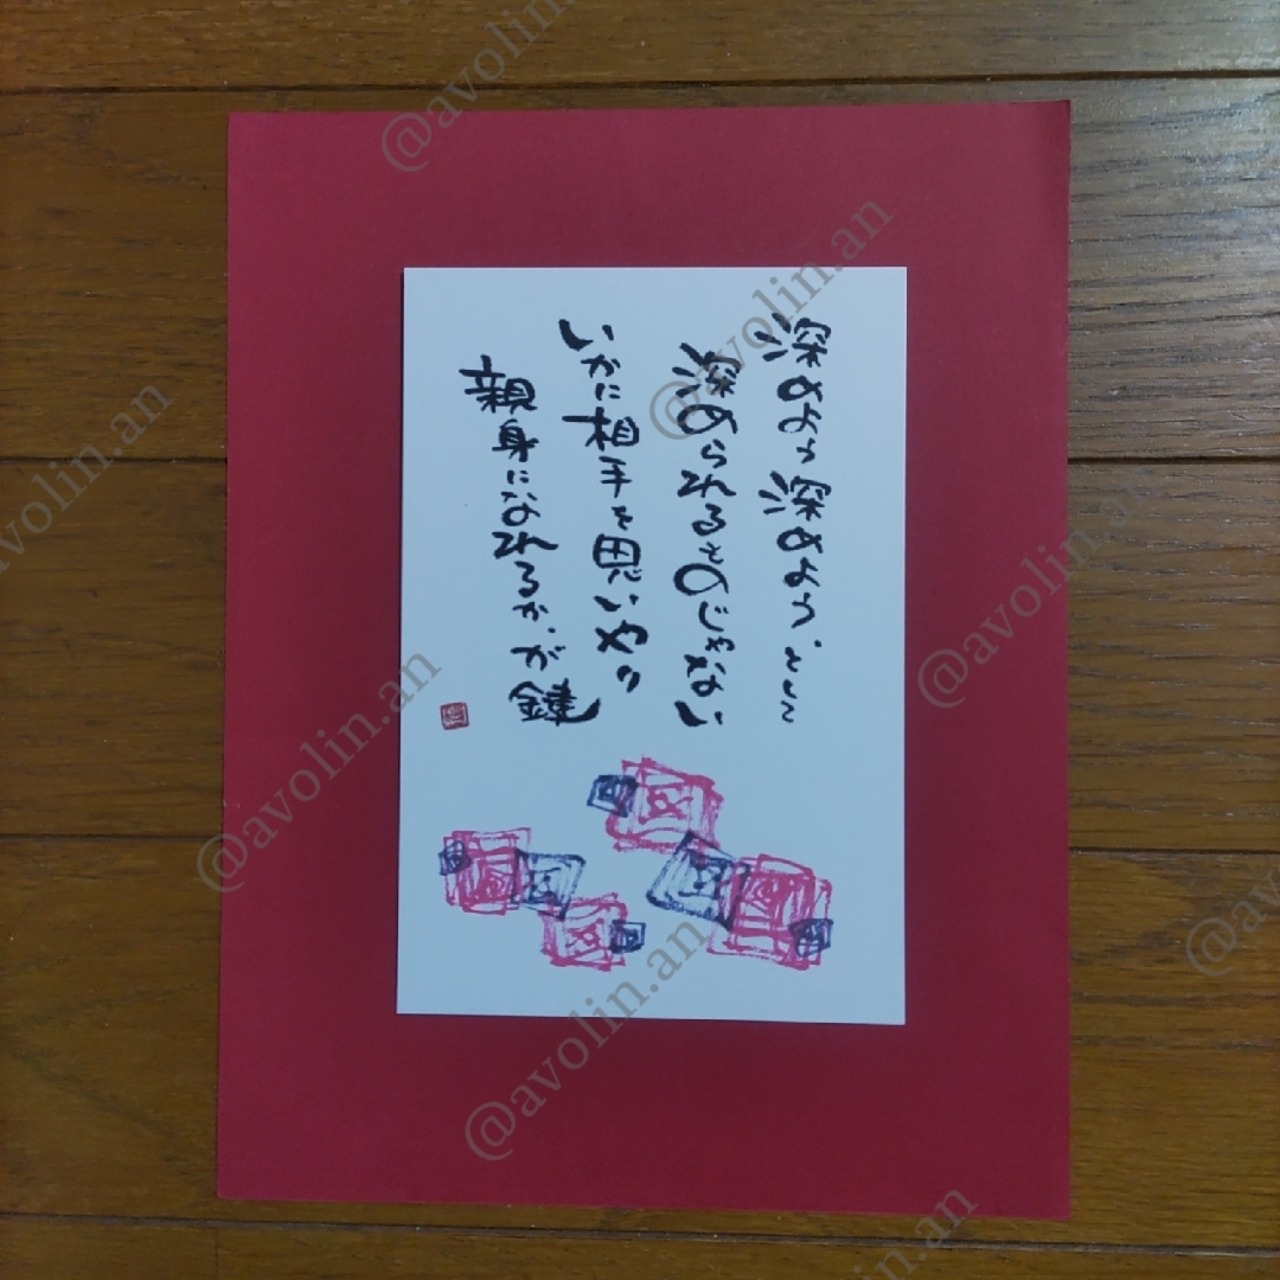 深めよう深めよう、として
深められるものじゃない
いかに相手を思いやり
親身になれるか、が鍵
@avolin.an
@avolin.an
@avolin.an
@avolin.an
@avolin.an
@avolin.an
@avolin.an